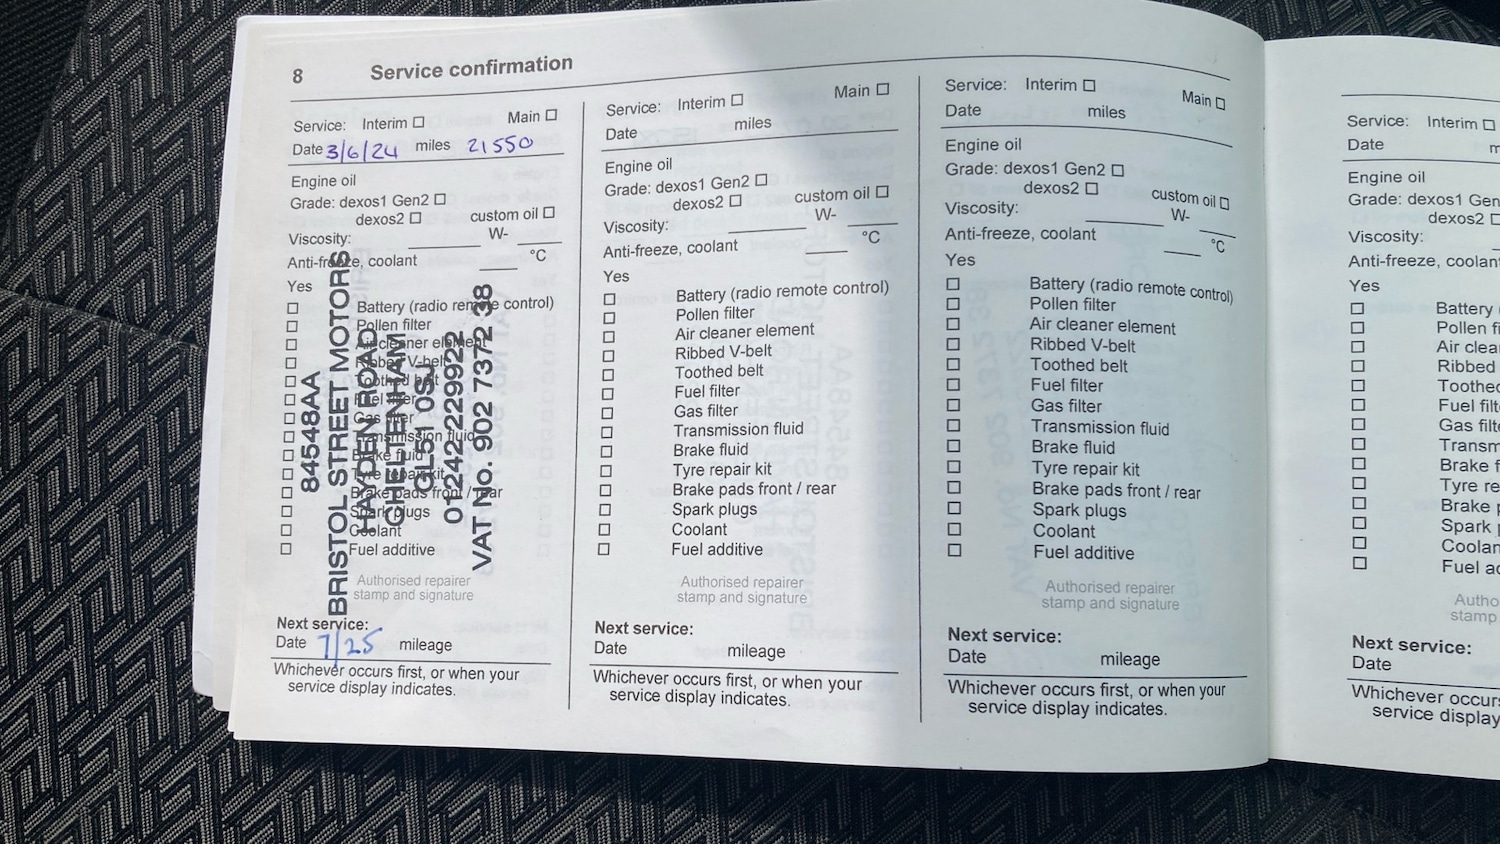 8 Service confirmation
Service: Interim ☐ Main ☐
Date 3/6/24 miles 21550
Engine oil
Grade: dexos1 Gen2 ☐
dexos2 ☐ custom oil ☐
Viscosity: W-
Anti-freeze, coolant °C
Yes
☐ Battery (radio remote control)
☐ Pollen filter
☐ Air cleaner element
☐ Ribbed V-belt
☐ Toothed belt
☐ Fuel filter
☐ Gas filter
☐ Transmission fluid
☐ Brake fluid
☐ Tyre repair kit
☐ Brake pads front / rear
☐ Spark plugs
☐ Coolant
☐ Fuel additive
84548AA
BRISTOL STREET MOTORS
HAYDEN ROAD
CHELTENHAM
GL51 0SJ
01242 229922
VAT No. 902 7372 38
Authorised repairer
stamp and signature
Next service:
Date 7/25 mileage
Whichever occurs first, or when your
service display indicates.
Service: Interim ☐ Main ☐
Date miles
Engine oil
Grade: dexos1 Gen2 ☐
dexos2 ☐ custom oil ☐
Viscosity: W-
Anti-freeze, coolant °C
Yes
☐ Battery (radio remote control)
☐ Pollen filter
☐ Air cleaner element
☐ Ribbed V-belt
☐ Toothed belt
☐ Fuel filter
☐ Gas filter
☐ Transmission fluid
☐ Brake fluid
☐ Tyre repair kit
☐ Brake pads front / rear
☐ Spark plugs
☐ Coolant
☐ Fuel additive
Authorised repairer
stamp and signature
Next service:
Date mileage
Whichever occurs first, or when your
service display indicates.
Service: Interim ☐ Main ☐
Date miles
Engine oil
Grade: dexos1 Gen2 ☐
dexos2 ☐ custom oil ☐
Viscosity: W-
Anti-freeze, coolant °C
Yes
☐ Battery (radio remote control)
☐ Pollen filter
☐ Air cleaner element
☐ Ribbed V-belt
☐ Toothed belt
☐ Fuel filter
☐ Gas filter
☐ Transmission fluid
☐ Brake fluid
☐ Tyre repair kit
☐ Brake pads front / rear
☐ Spark plugs
☐ Coolant
☐ Fuel additive
Authorised repairer
stamp and signature
Next service:
Date mileage
Whichever occurs first, or when your
service display indicates.
Service: Interim ☐
Date m
Engine oil
Grade: dexos1 Gen
dexos2 ☐
Viscosity:
Anti-freeze, coolant
Yes
☐ Battery
☐ Pollen fi
☐ Air clea
☐ Ribbed
☐ Toothed
☐ Fuel filt
☐ Gas filt
☐ Transm
☐ Brake f
☐ Tyre re
☐ Brake p
☐ Spark
☐ Coolan
☐ Fuel ad
Autho
stamp
Next service:
Date
Whichever occurs
service display